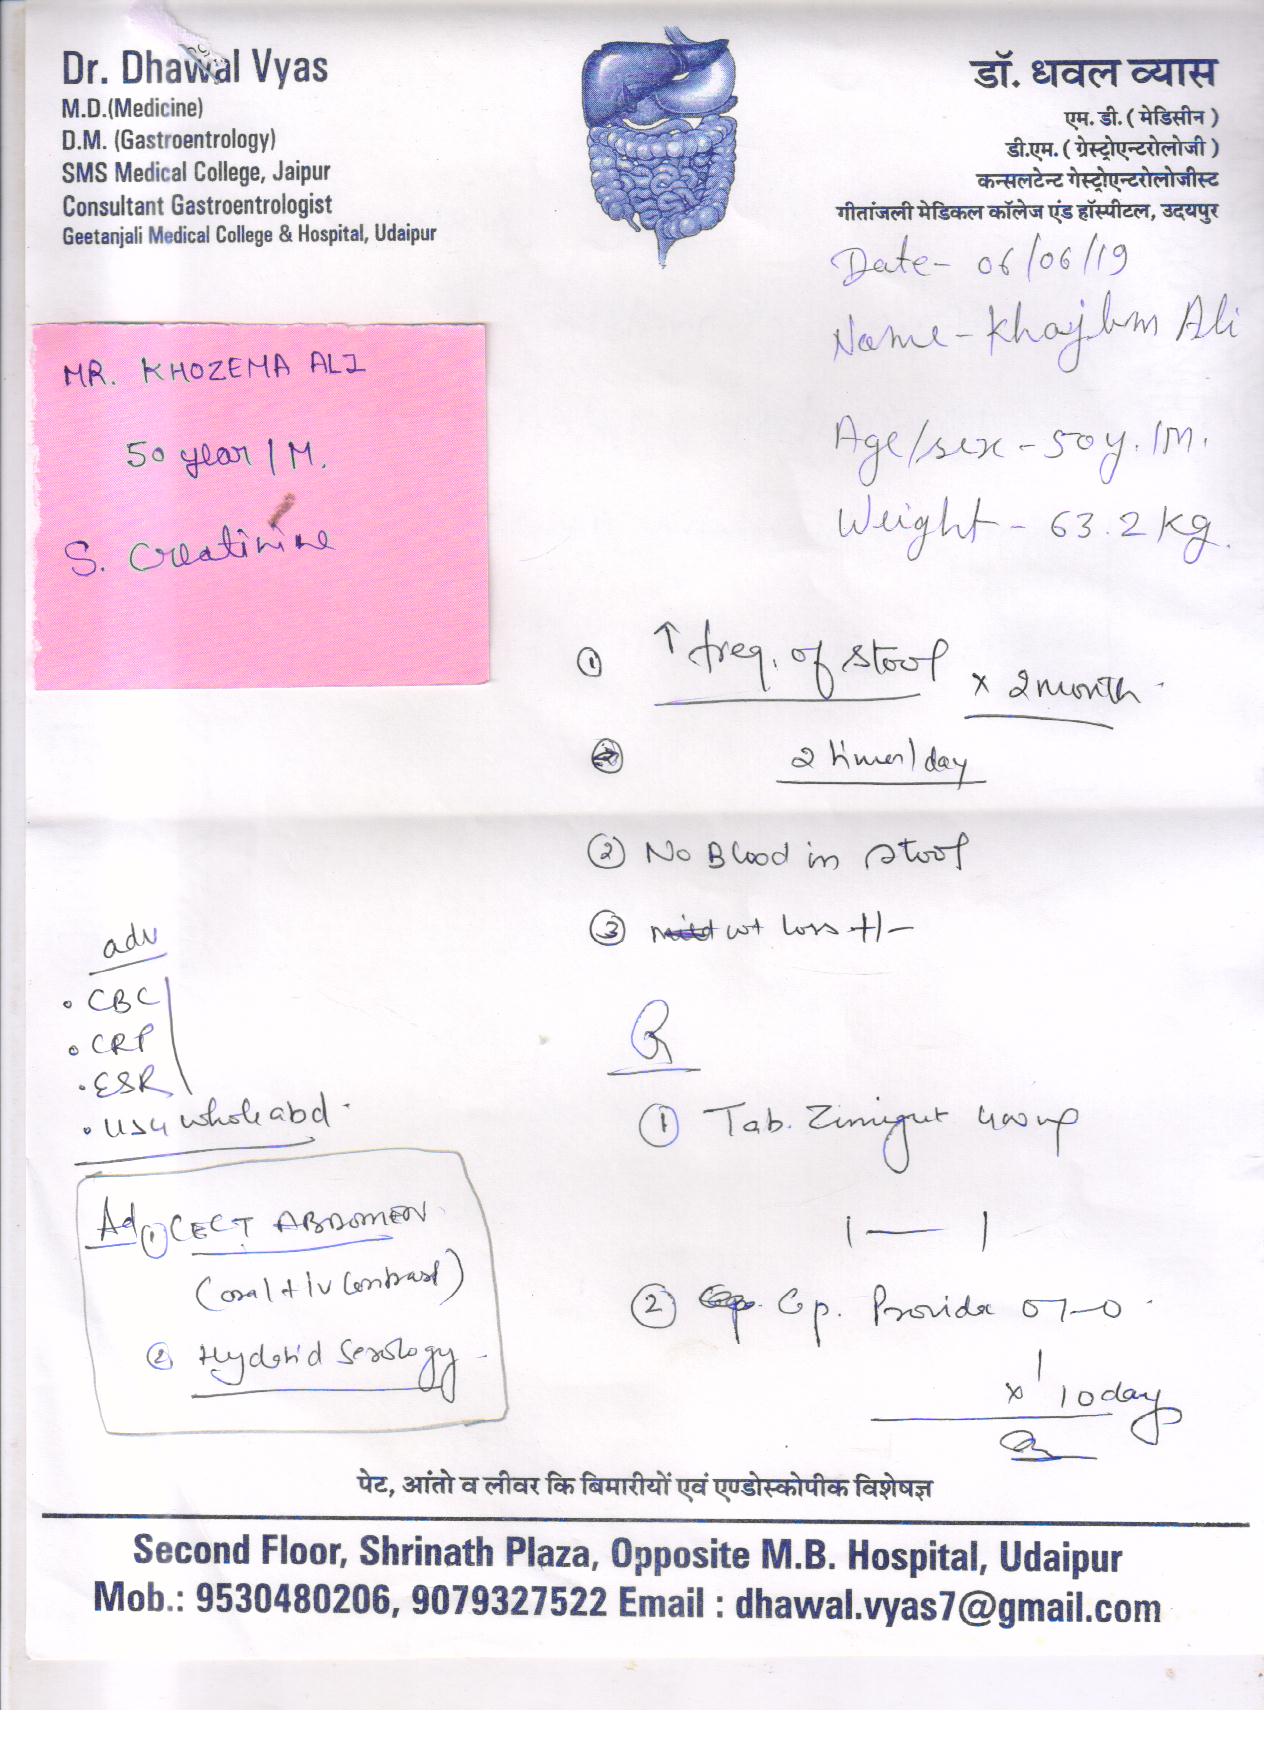 Dr. Dhawal Vyas
M.D.(Medicine)
D.M. (Gastroentrology)
SMS Medical College, Jaipur
Consultant Gastroentrologist
Geetanjali Medical College & Hospital, Udaipur
डॉ. धवल व्यास
एम. डी. ( मेडिसीन )
डी.एम. ( ग्रेस्ट्रोएन्टरोलोजी )
कन्सलटेन्ट गेस्ट्रोएन्टरोलोजीस्ट
गीतांजली मेडिकल कॉलेज एंड हॉस्पीटल, उदयपुर
Date- 06/06/19
Name- Ali
Age/sex - 50y. /M.
Weight - 63.2 kg.
MR. KHOZEMA ALI
50 year / M.
S. Creatinine
① ↑ freq. of stool x 2 month
2 times/day
② No Blood in stool
③ wt loss +/-
adv
• CBC
• CRP
• ESR
• USG whole abd.
Ad ① CECT ABDOMEN
(oral + IV contrast)
② Hydatid Serology
Rx
① Tab. Zinigut 400 mg
1 — 1
② Cp. Provida
1
x 10 day
पेट, आंतो व लीवर कि बिमारीयों एवं एण्डोस्कोपीक विशेषज्ञ
Second Floor, Shrinath Plaza, Opposite M.B. Hospital, Udaipur
Mob.: 9530480206, 9079327522 Email : dhawal.vyas7@gmail.com